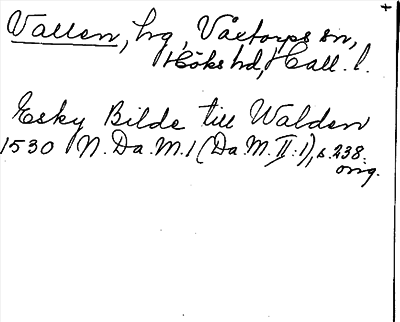 Vallen, hg, Våxtorps sn,
Höks hd, Hall. l.
Esky Bilde till Walden
1530 N.Da.M.1 (Da.M.II:1), s.238.
orig.